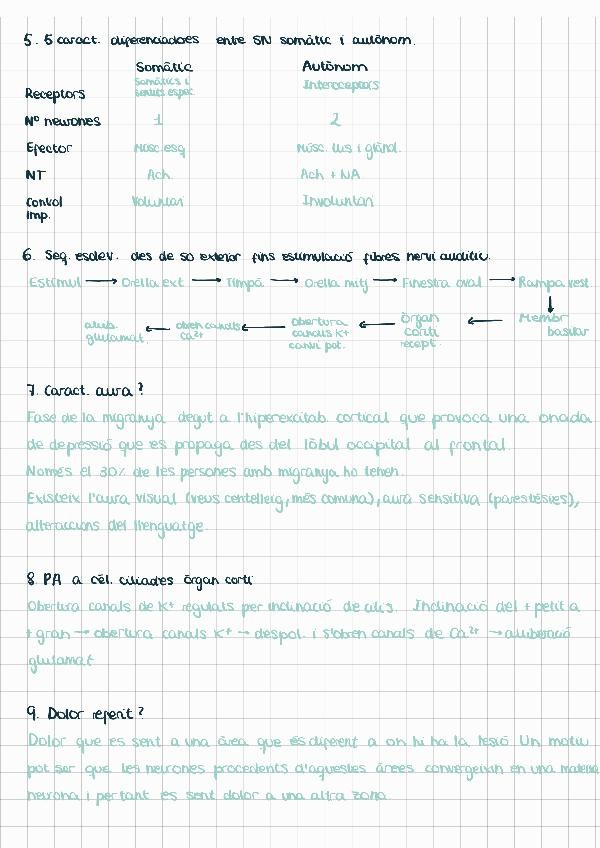 5. 5 caract. diferenciadores entre SN somàtic i autònom.
Somàtic Autònom
Receptors Somàtics i sentits espec. Interoceptors
Nº neurones 1 2
Efector Músc. esq Músc. llis i glànd.
NT Ach Ach + NA
Control imp. Voluntari Involuntari
6. Seq. esdev. des de so exterior fins estimulació fibres nervi auditiu.
Estímul → Orella ext → Timpà → Orella mitj → Finestra oval → Rampa vest.
↓
allib. glutamat ← obren canals Ca²⁺ ← obertura canals K⁺ canvi pot. ← òrgan corti recept. ← Membr basilar
7. Caract. aura?
Fase de la migranya degut a l'hiperexcitab. cortical que provoca una onada
de depressió que es propaga des del lòbul occipital al frontal.
Només el 30% de les persones amb migranya ho tenen.
Existeix l'aura visual (veus centelleig, més comuna), aura sensitiva (parestèsies),
alteraccions del llenguatge.
8. PA a cèl. ciliades òrgan corti
Obertura canals de K⁺ regulats per inclinació de cilis. Inclinació del + petit a
+ gran → obertura canals K⁺ → despol. i s'obren canals de Ca²⁺ → alliberació
glutamat
9. Dolor referit?
Dolor que es sent a una àrea que és diferent a on hi ha la lesió. Un motiu
pot ser que les neurones procedents d'aquestes àrees convergeixin en una mateixa
neurona i per tant es sent dolor a una altra zona.